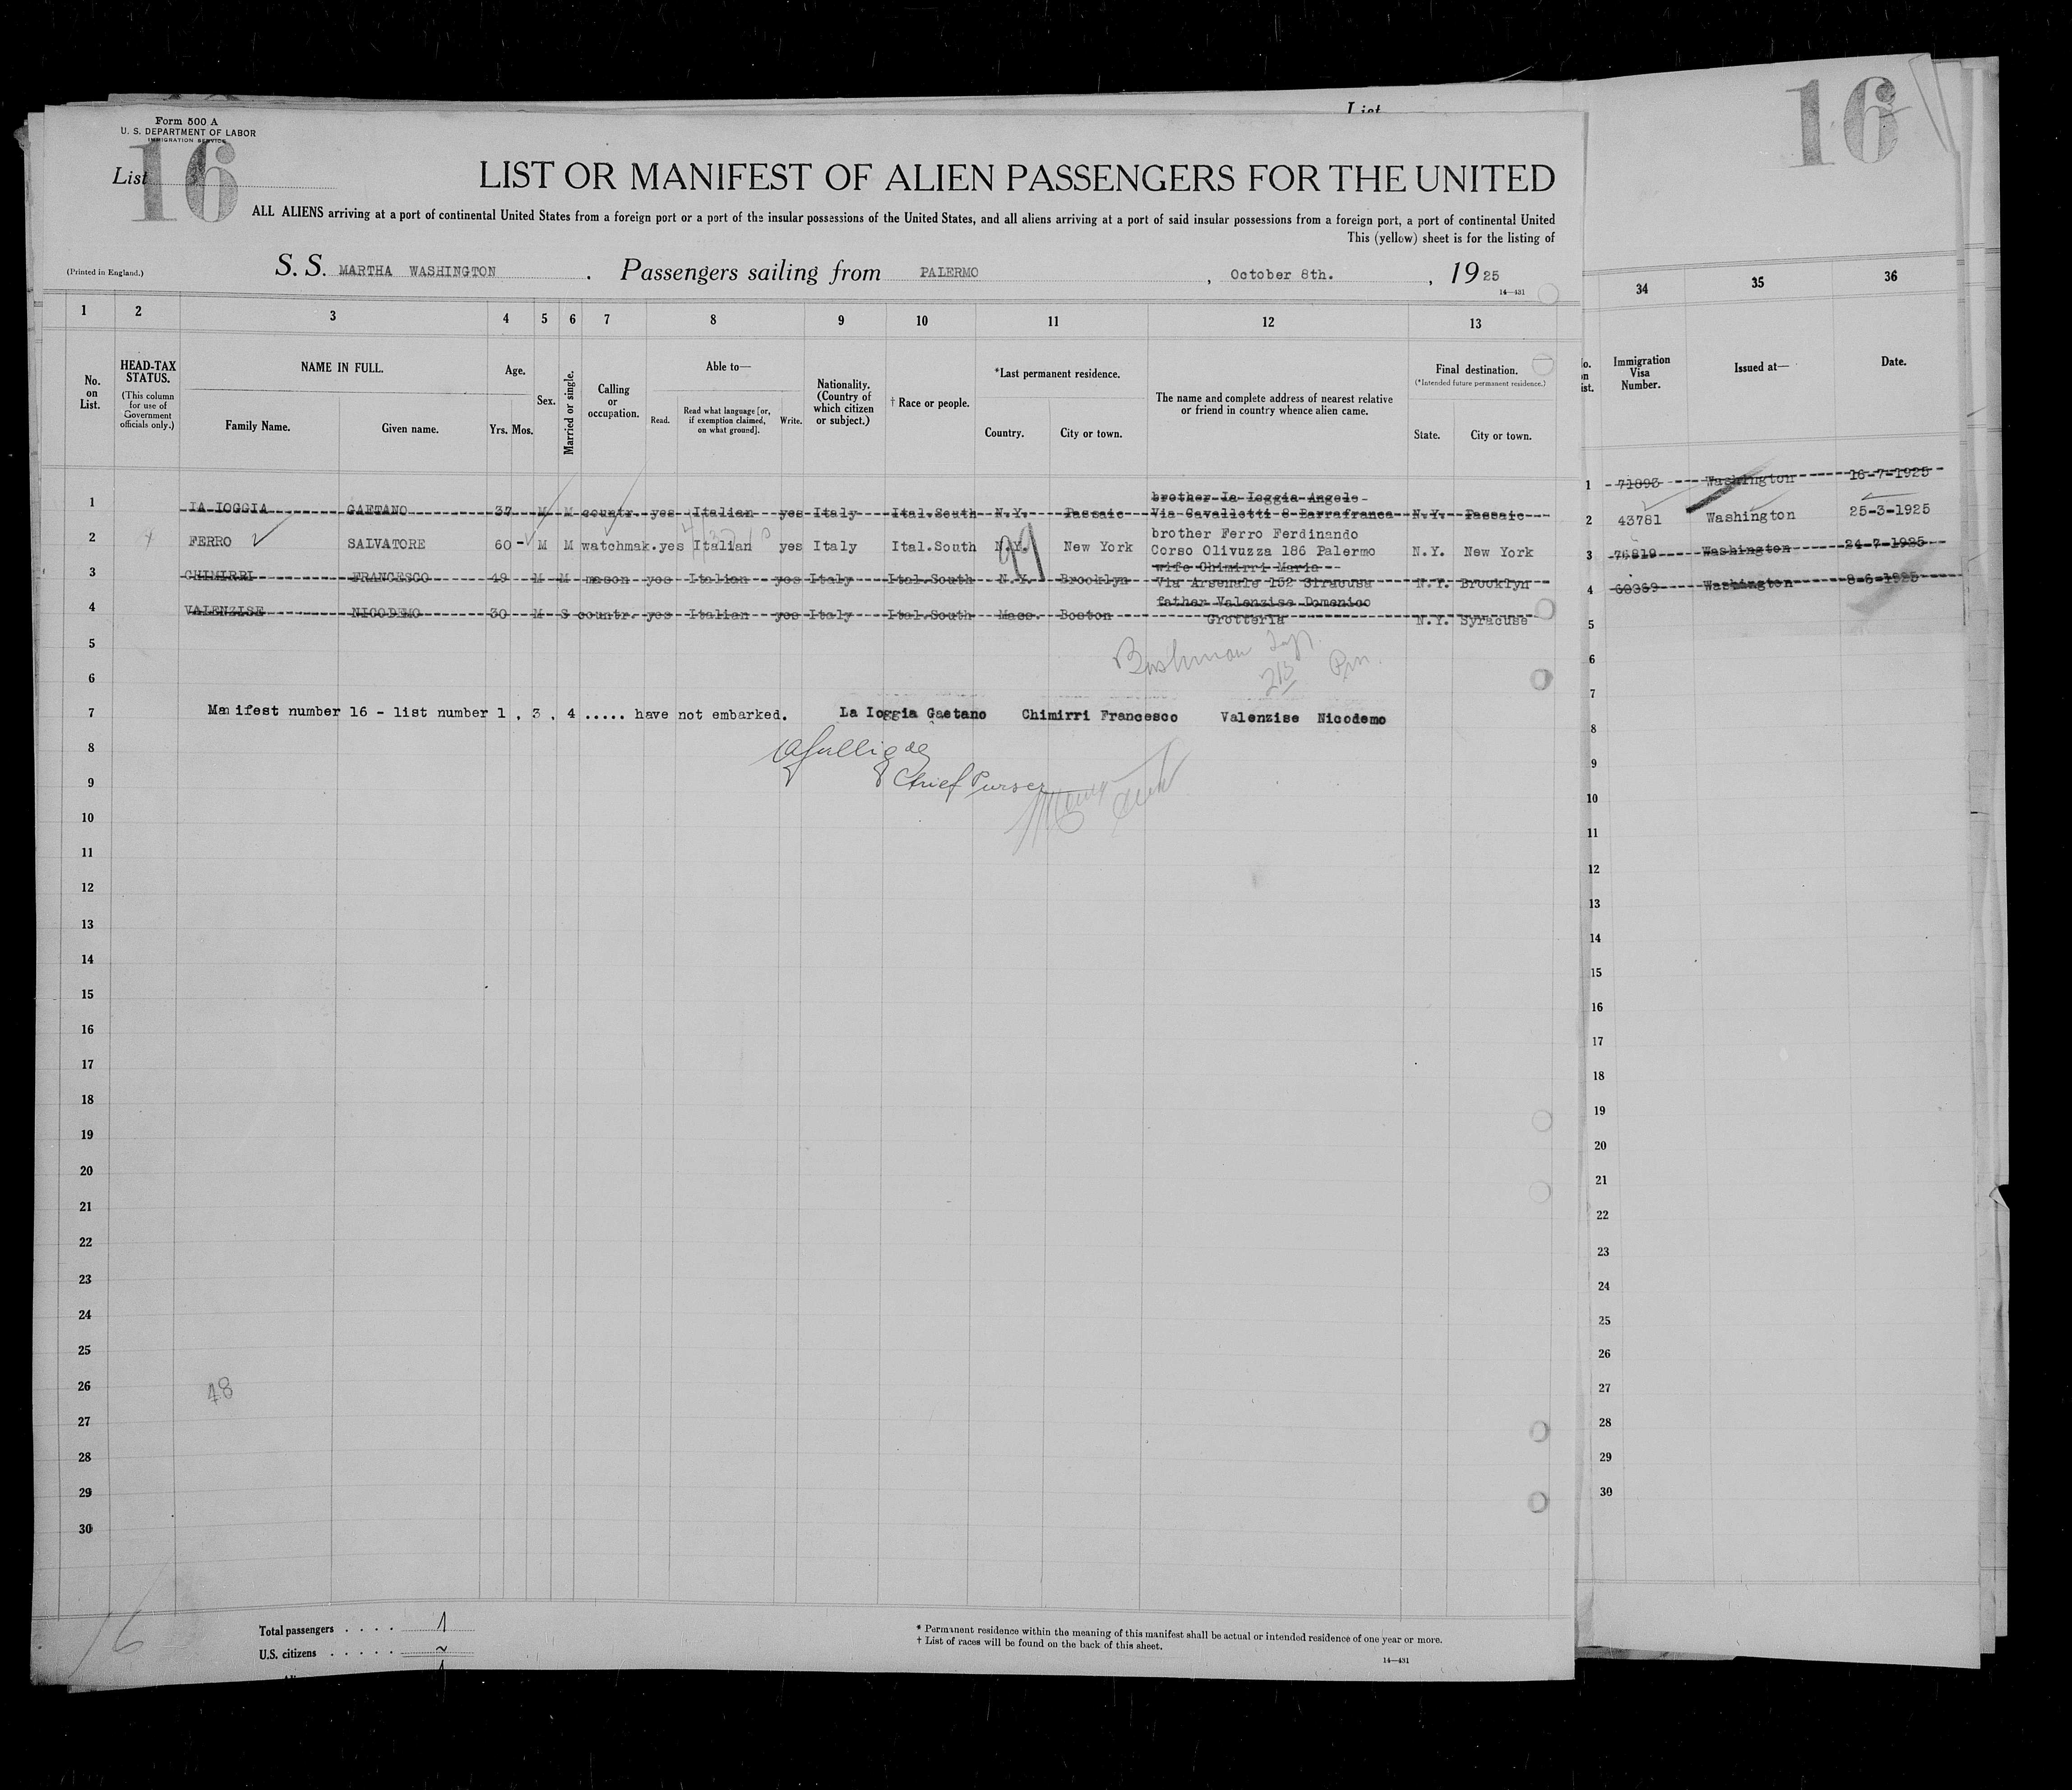 List
16
Form 500 A
U. S. DEPARTMENT OF LABOR
IMMIGRATION SERVICE
List 16
LIST OR MANIFEST OF ALIEN PASSENGERS FOR THE UNITED
ALL ALIENS arriving at a port of continental United States from a foreign port or a port of the insular possessions of the United States, and all aliens arriving at a port of said insular possessions from a foreign port, a port of continental United
This (yellow) sheet is for the listing of
(Printed in England.)
S. S. MARTHA WASHINGTON . Passengers sailing from PALERMO , October 8th. , 1925
14—431
1 2 3 4 5 6 7 8 9 10 11 12 13 34 35 36
No. on List.
HEAD-TAX STATUS.
(This column for use of Government officials only.)
NAME IN FULL.
Family Name.
Given name.
Age.
Yrs. Mos.
Sex.
Married or single.
Calling or occupation.
Able to—
Read.
Read what language [or, if exemption claimed, on what ground].
Write.
Nationality. (Country of which citizen or subject.)
† Race or people.
*Last permanent residence.
Country.
City or town.
The name and complete address of nearest relative or friend in country whence alien came.
Final destination.
(*Intended future permanent residence.)
State.
City or town.
Immigration Visa Number.
Issued at—
Date.
brother La Ioggia Angelo
1 LA IOGGIA GAETANO 37 M M countr. yes Italian yes Italy Ital.South N.Y. Passaic Via Cavallotti 8 Barrafranca N.Y. Passaic 1 71893 Washington 16-7-1925
brother Ferro Ferdinando
2 FERRO SALVATORE 60 - M M watchmak. yes Italian yes Italy Ital.South N.Y. New York Corso Olivuzza 186 Palermo N.Y. New York 2 43781 Washington 25-3-1925
wife Chimirri Maria
3 CHIMIRRI FRANCESCO 49 M M mason yes Italian yes Italy Ital.South N.Y. Brooklyn Via Arsenale 152 Siracusa N.Y. Brooklyn 3 76819 Washington 24-7-1925
father Valenzise Domenico
4 VALENZISE NICODEMO 30 M S countr. yes Italian yes Italy Ital.South Mass. Boston Grotteria N.Y. Syracuse 4 60369 Washington 8-6-1925
5 5
Bushman Insp.
213
6 6
7 Manifest number 16 - list number 1 , 3 , 4 ..... have not embarked. La Ioggia Gaetano Chimirri Francesco Valenzise Nicodemo 7
8 8
Chief Purser
9 9
10 10
11 11
12 12
13 13
14 14
15 15
16 16
17 17
18 18
19 19
20 20
21 21
22 22
23 23
24 24
25 25
26 48 26
27 27
28 28
29 29
30 30
16
Total passengers . . . . 1
U.S. citizens . . . . . ~
* Permanent residence within the meaning of this manifest shall be actual or intended residence of one year or more.
† List of races will be found on the back of this sheet.
14—431